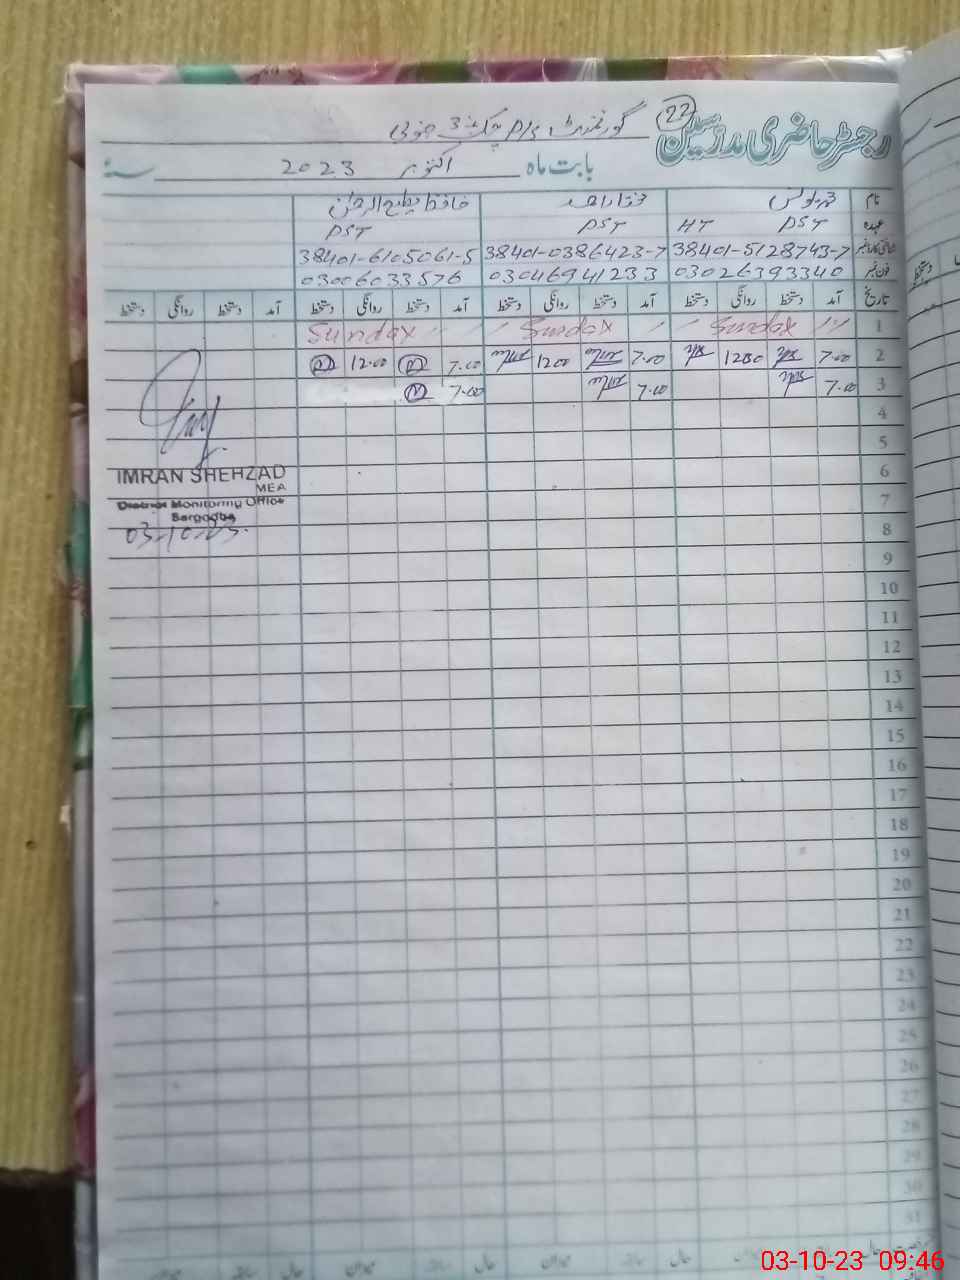 22
رجسٹر حاضری مدرسین
گورنمنٹ P/S چک نمبر 3 جنوبی
بابت ماہ اکتوبر 2023 سنہ
نام محمد یونس حافظ الرحمن
عہدہ PST HT PST PST
شناختی کارڈ نمبر 38401-5128743-7 38401-0386423-7 38401-6105061-5
فون نمبر 03026393340 03046941233 03006033576
تاریخ آمد دستخط روانگی دستخط آمد دستخط روانگی دستخط آمد دستخط روانگی دستخط آمد دستخط روانگی دستخط
1 Sunday Sunday Sunday
2 7.00 1200 7.00 1200 7.00 12.00
3 7.00 7.00 7.00
4
5
6
7
8
9
10
11
12
13
14
15
16
17
18
19
20
21
22
23
24
25
26
27
28
29
30
31
IMRAN SHEHZAD
MEA
District Monitoring Office
Sargodha
03-10-23
03-10-23 09:46